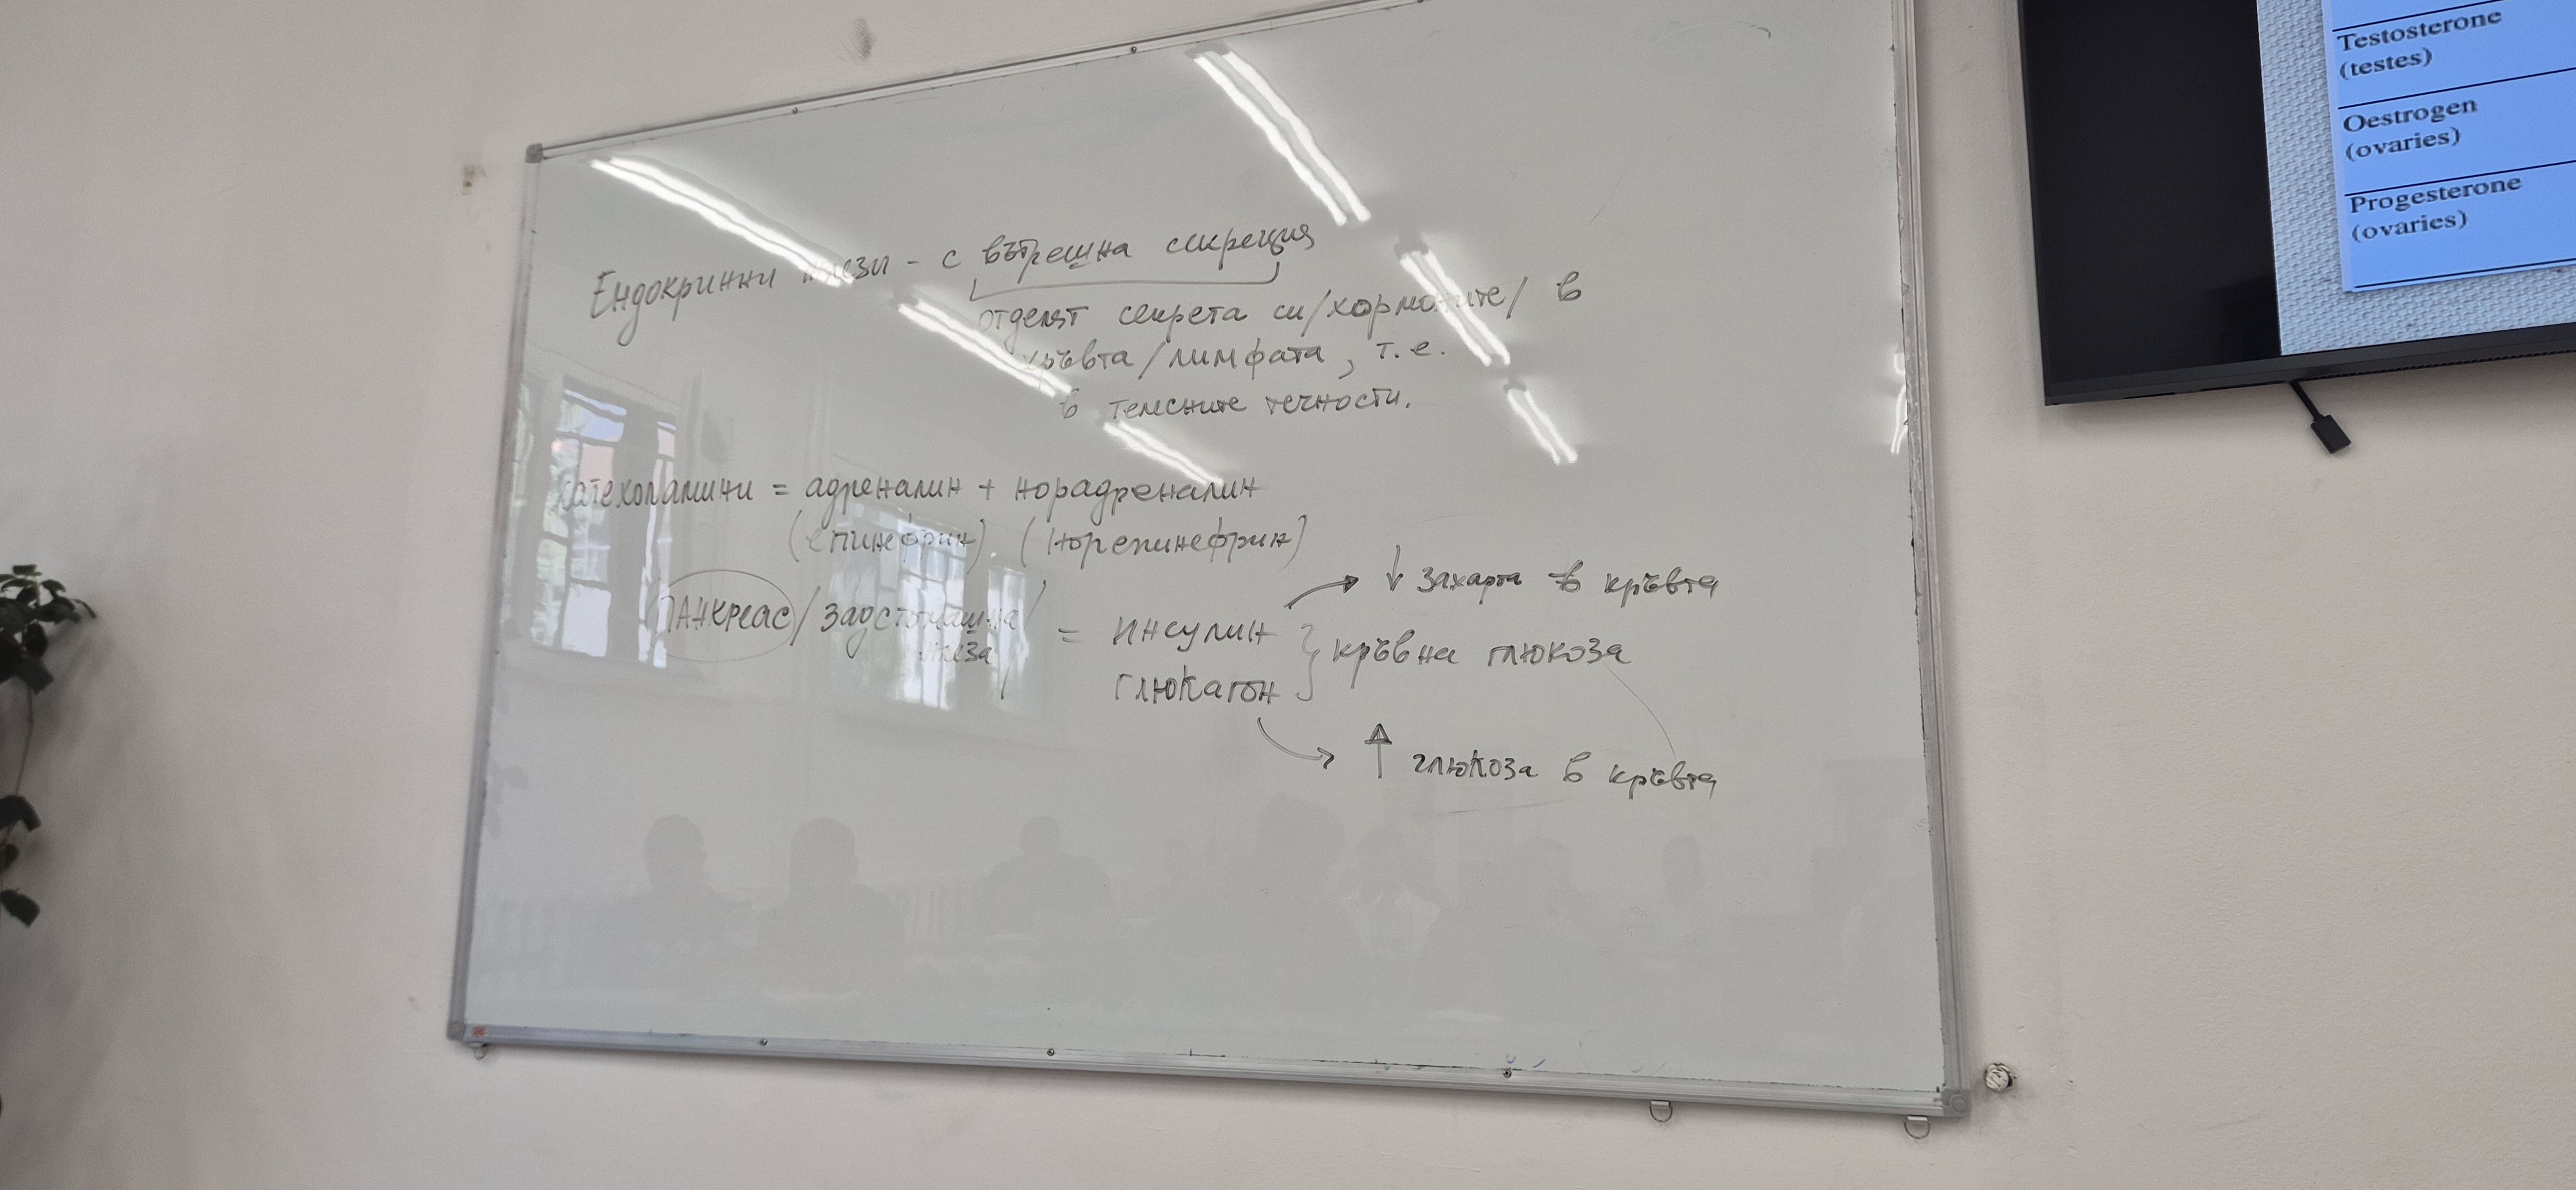 Ендокринни жлези - с вътрешна секреция
отделят секрета си /хормоните/ в
кръвта /лимфата, т.е.
в телесните течности.
катехоламини = адреналин + норадреналин
(епинефрин). (норепинефрин)
ПАНкреас / задстомашна
жлеза /
= инсулин
глюкагон
} кръвна глюкоза
→ ↓ захарта в кръвта
→ ↑ глюкоза в кръвта
Testosterone
(testes)
Oestrogen
(ovaries)
Progesterone
(ovaries)